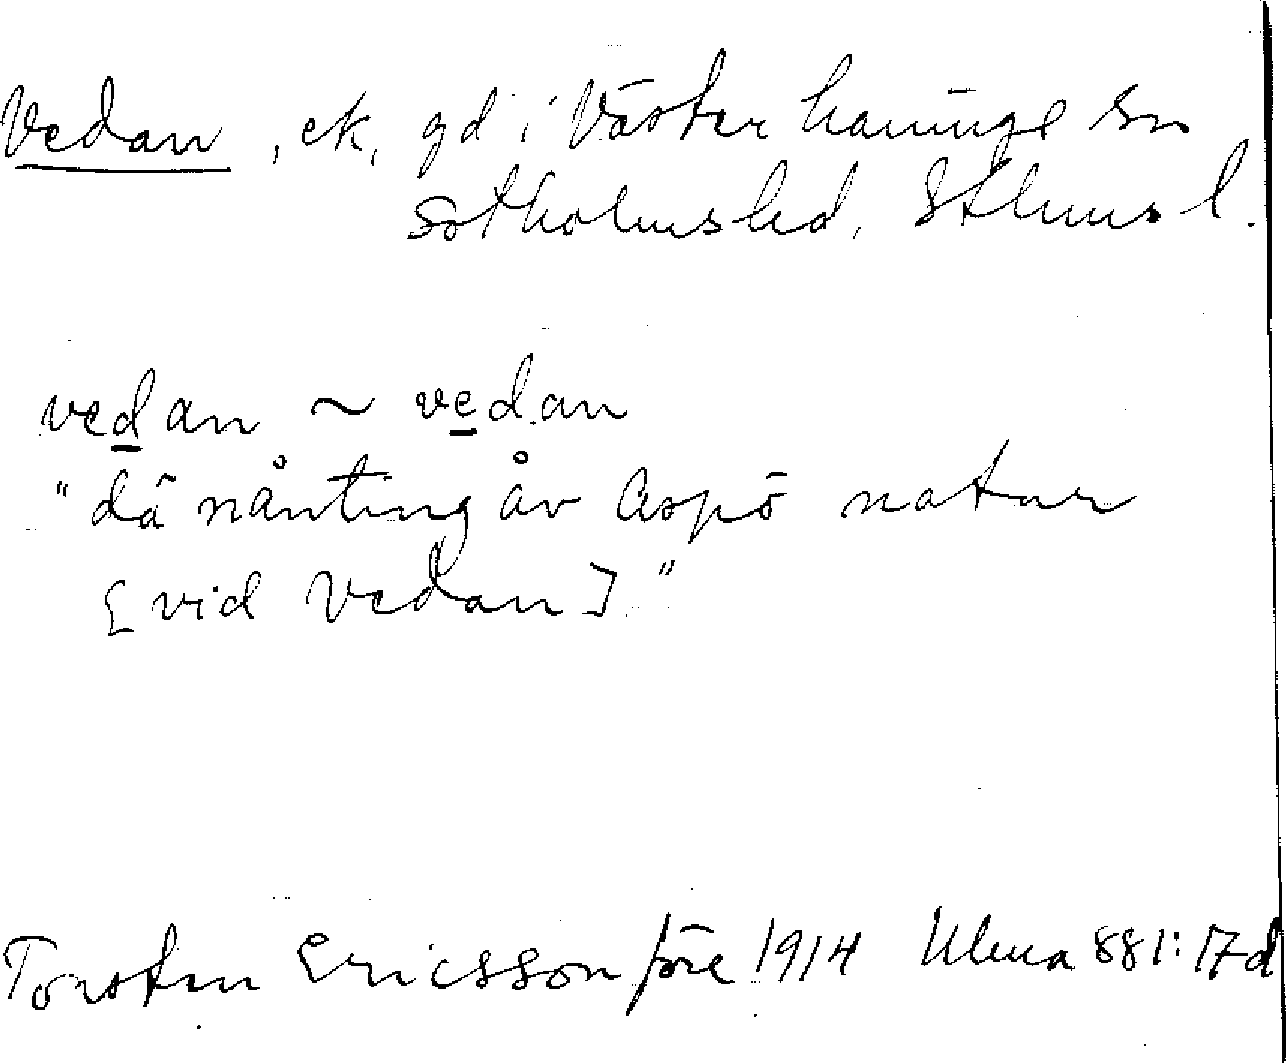 Vedan, ek, gd i Västerhaninge sn
Sotholms hd, Sthlms l.
vedan ~ vedan
"dä nånting åv Aspö natur
[vid Vedan]"
Torsten Ericsson före 1914 Ulma 881:17d